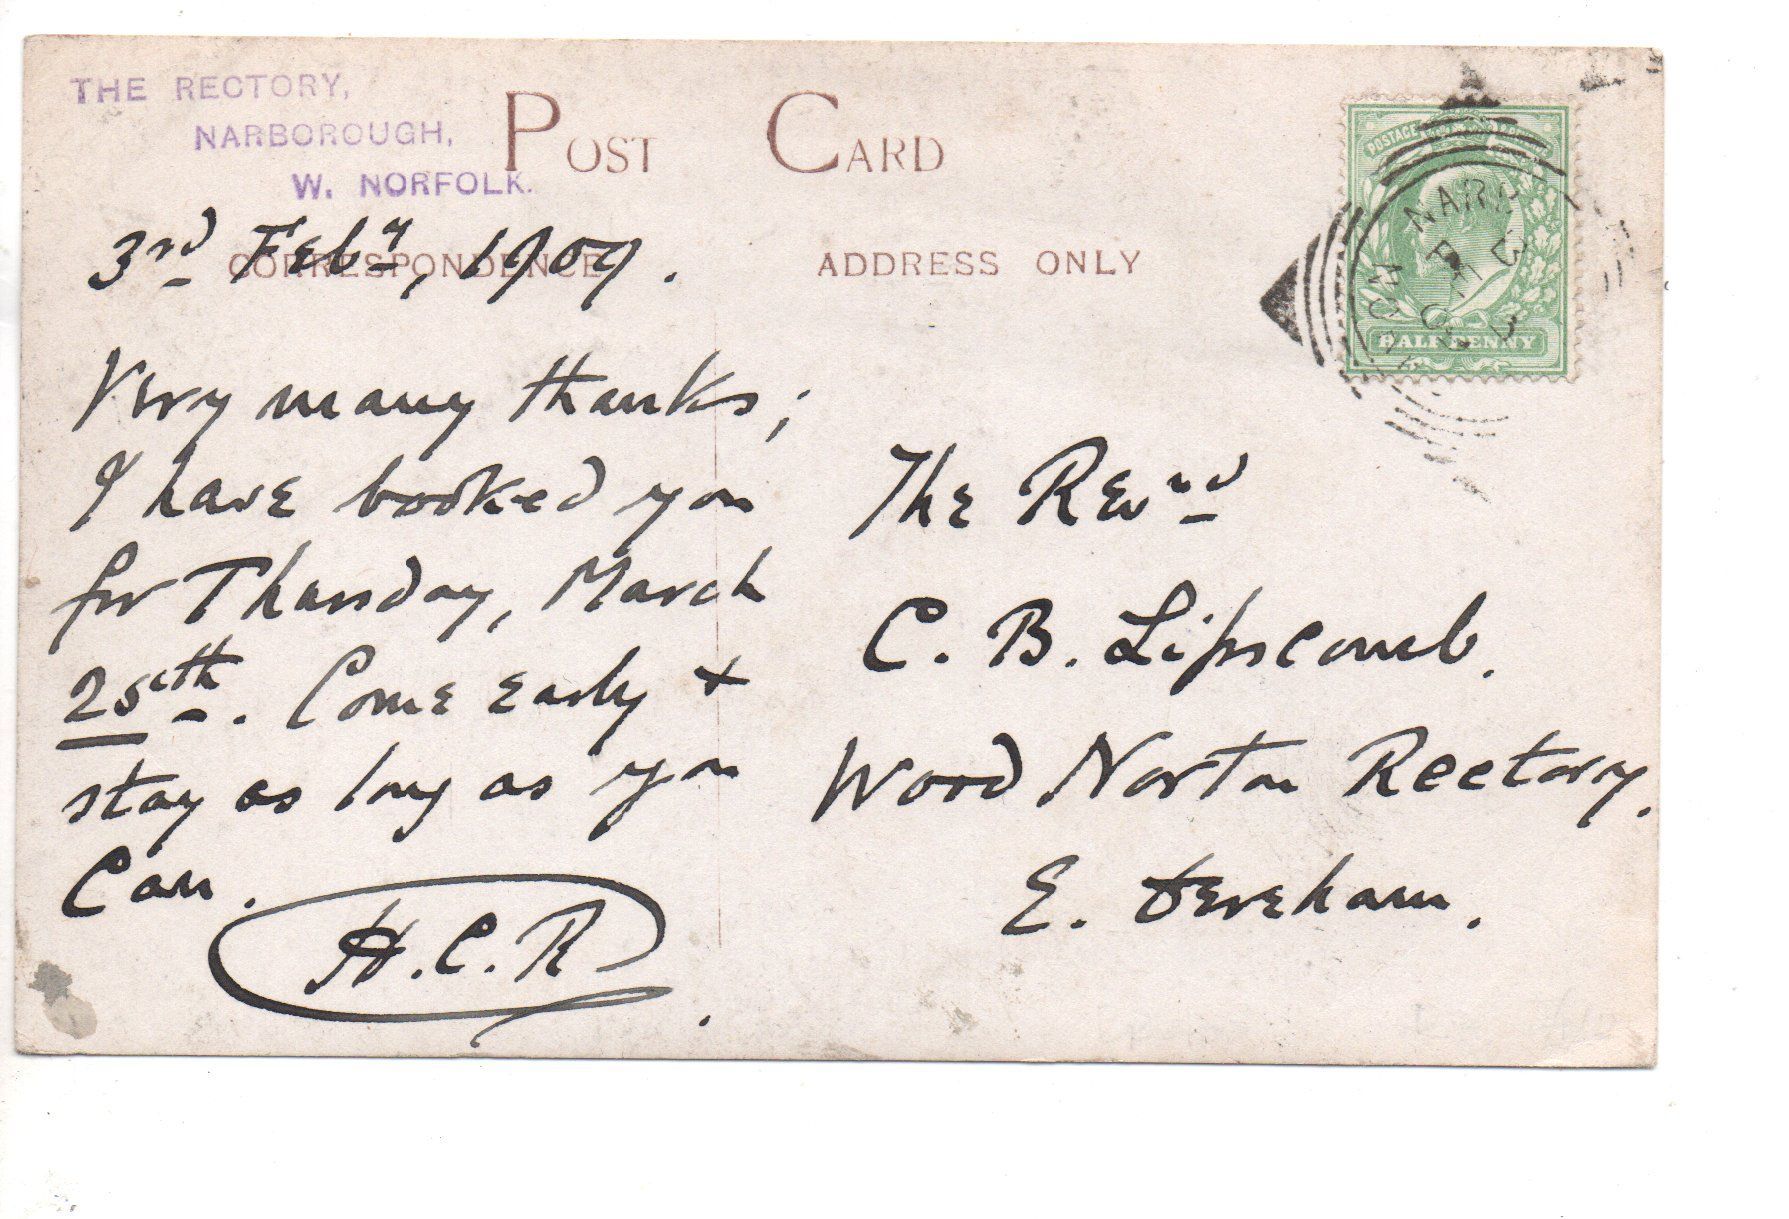 THE RECTORY,
NARBOROUGH,
W. NORFOLK.
POST CARD
CORRESPONDENCE
ADDRESS ONLY
3rd Feby, 1909.
Very many thanks;
I have booked you
for Thursday, March
25th. Come early +
stay as long as you
Can.
H.C.R.
The Revnd
C. B. Lipscomb.
Wood Norton Rectory,
E. Dereham.
POSTAGE
HALFPENNY